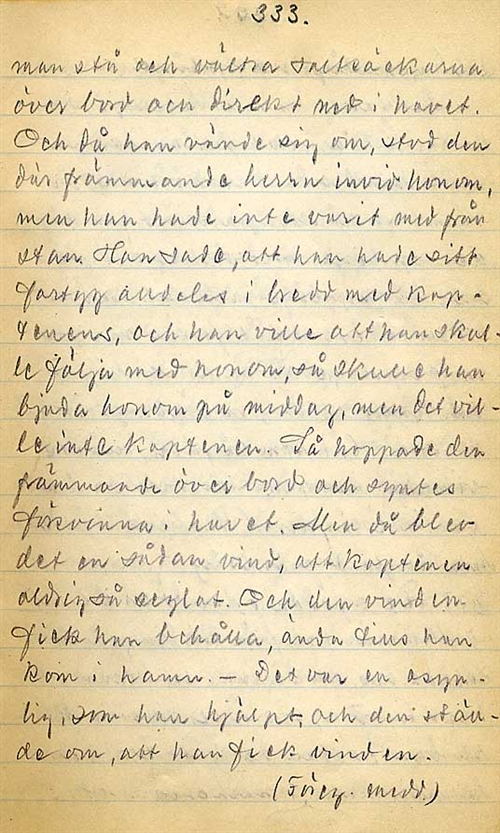 333.
man stå och vältra saltsäckarna
över bord och direkt ned i havet.
Och då han vände sig om, stod den
där främmande herrn invid honom,
men han hade inte varit med från
stan. Han sade, att han hade sitt
fartyg alldeles i bredd med kap-
tenens, och han ville att han skul-
le följa med honom, så skulle han
bjuda honom på middag, men det vil-
le inte kaptenen. Så hoppade den
främmande över bord och syntes
försvinna i havet. Men då blev
det en sådan vind, att kaptenen
aldrig så seglat. Och den vinden
fick han behålla, ända tius han
kom i hamn. — Det var en osyn-
lig, som han hjälpt, och den stäu-
de om, att han fick vinden.
(Föreg. medd.)